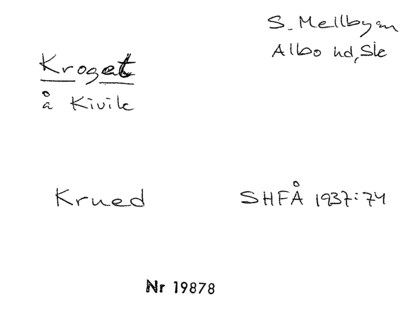 S. Mellbyn
Albo hd, Sk
Kroget
å Kivik
Krued
SHFÅ 1937:74
Nr 19878